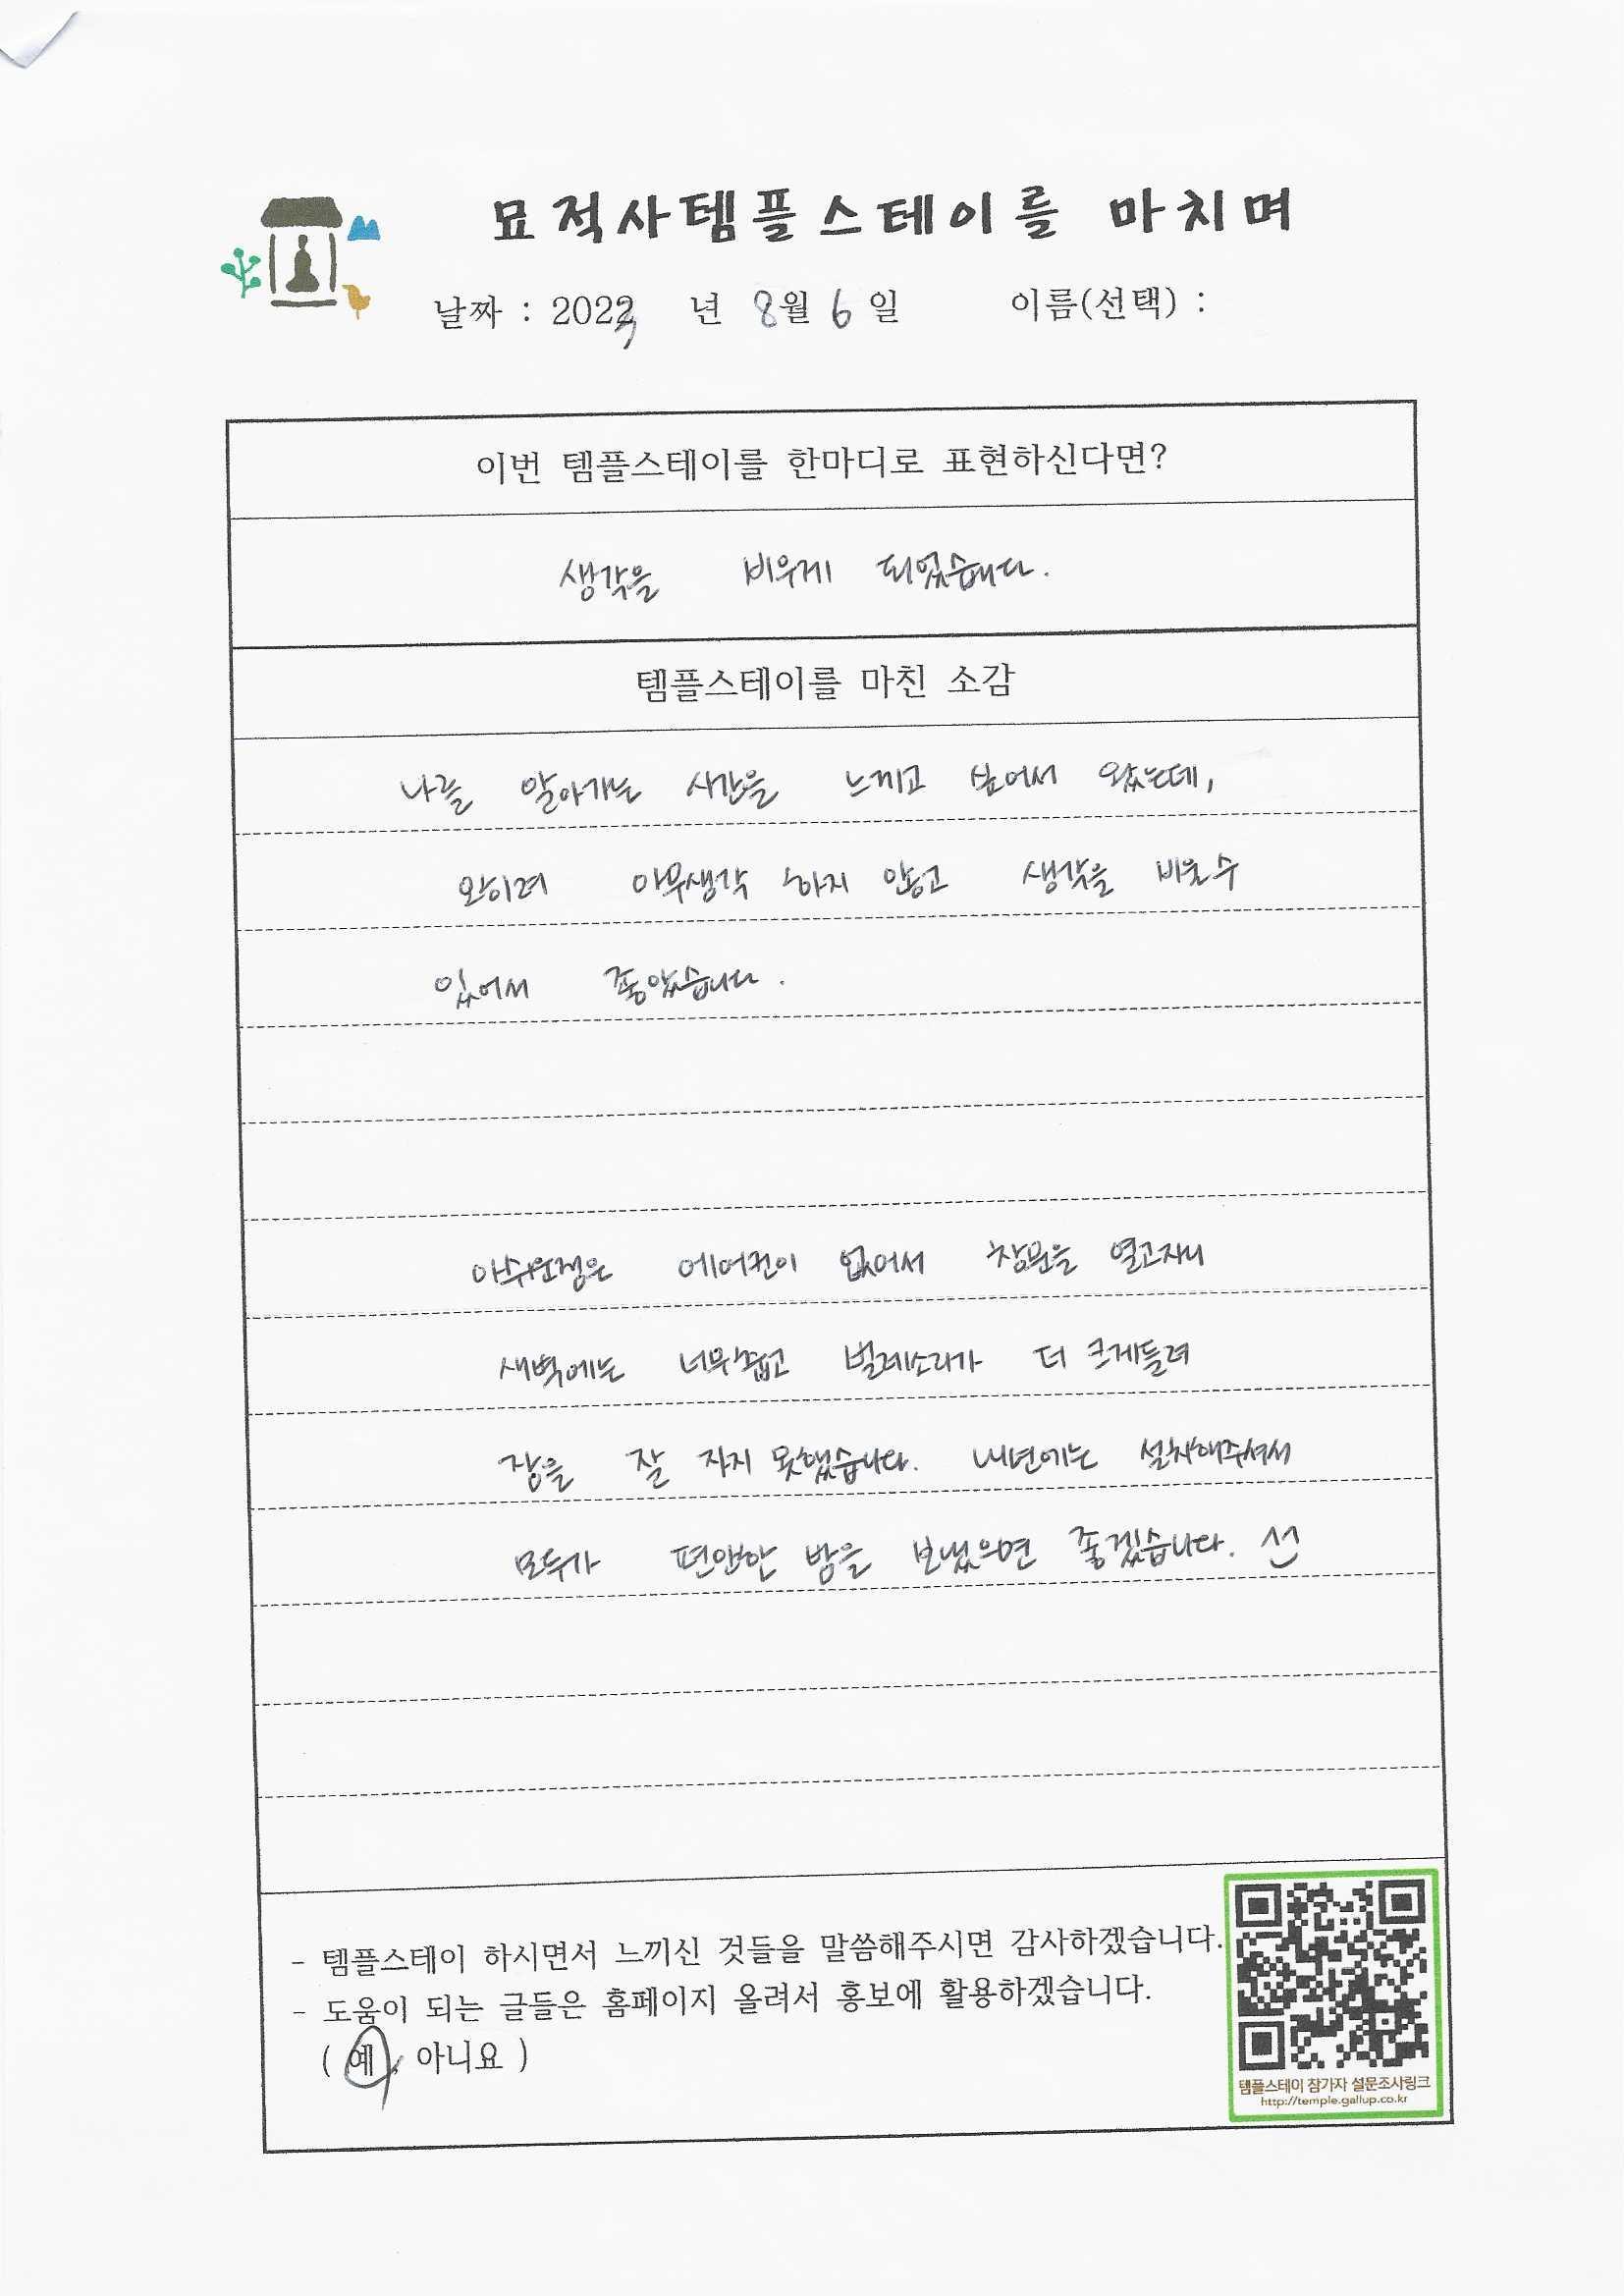 묘적사템플스테이를 마치며
날짜 : 2023 년 8월 6일 이름(선택) :
이번 템플스테이를 한마디로 표현하신다면?
생각을 비우게 되었습니다.
템플스테이를 마친 소감
나를 알아가는 시간을 느끼고 싶어서 왔는데,
오히려 아무생각 하지 않고 생각을 비울수
있어서 좋았습니다.
아쉬운점은 에어컨이 없어서 창문을 열고자니
새벽에는 너무춥고 벌레소리가 더 크게들려
잠을 잘 자지 못했습니다. 내년에는 설치해주셔서
모두가 편안한 밤을 보냈으면 좋겠습니다.
- 템플스테이 하시면서 느끼신 것들을 말씀해주시면 감사하겠습니다.
- 도움이 되는 글들은 홈페이지 올려서 홍보에 활용하겠습니다.
( 예, 아니요 )
템플스테이 참가자 설문조사링크
http://temple.gallup.co.kr